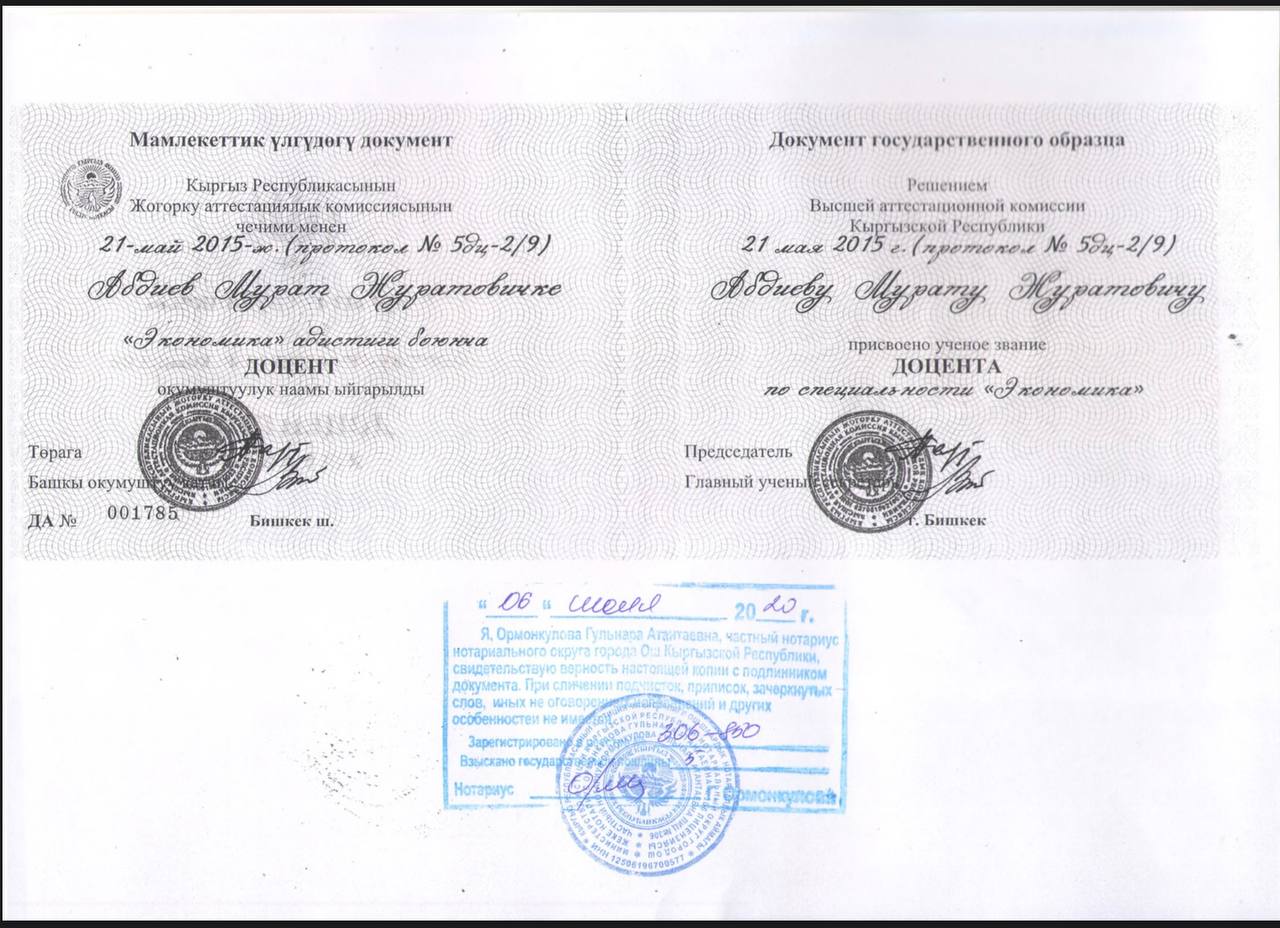 Мамлекеттик үлгүдөгү документ
Кыргыз Республикасынын
Жогорку аттестациялык комиссиясынын
чечими менен
21-май 2015-ж. (протокол № 5дц-2/9)
Абдиев Мурат Журатовичке
«Экономика» адистиги боюнча
ДОЦЕНТ
окумуштуулук наамы ыйгарылды
Төрага
Башкы окумуштуу
ДА № 001785 Бишкек ш.
Документ государственного образца
Решением
Высшей аттестационной комиссии
Кыргызской Республики
21 мая 2015 г. (протокол № 5дц-2/9)
Абдиеву Мурату Журатовичу
присвоено ученое звание
ДОЦЕНТА
по специальности «Экономика»
Председатель
Главный ученый секретарь
г. Бишкек
“ 06 “ июля 2020 г.
Я, Ормонкулова Гульнара Атантаевна, частный нотариус
нотариального округа города Ош Кыргызской Республики,
свидетельствую верность настоящей копии с подлинником
документа. При сличении подчисток, приписок, зачеркнутых
слов, иных не оговоренных и других
особенностей не имеется
Зарегистрировано 306-850
Взыскано государственной пошлины
Нотариус Г. Ормонкулова
ИНН 12506196700577